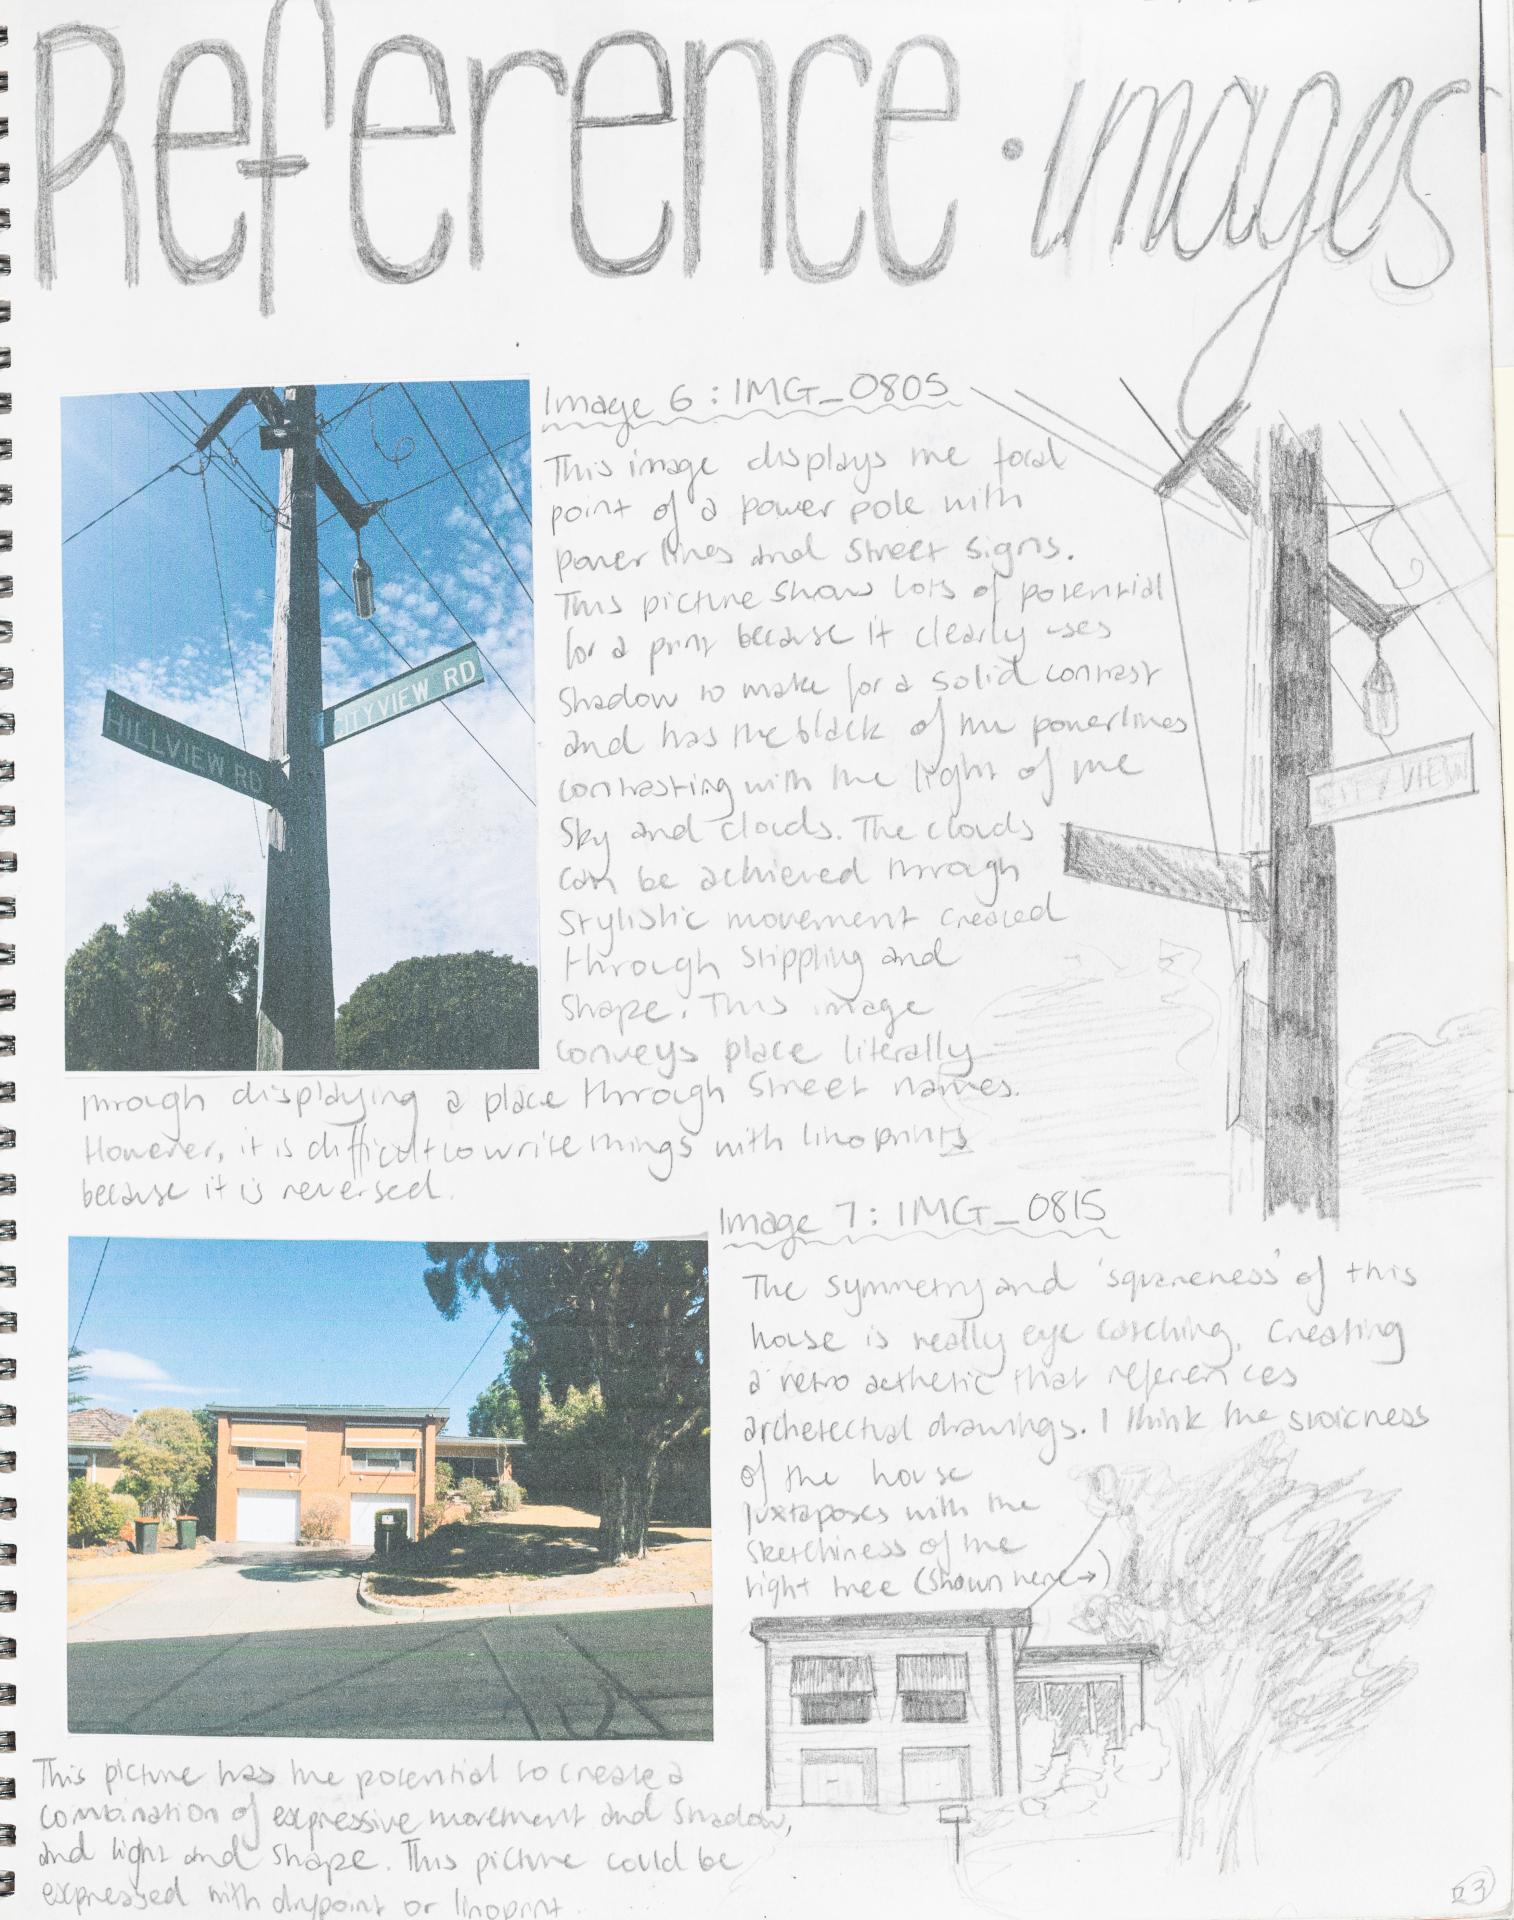 Reference · images
Image 6 : IMG_0805
This image displays the focal
point of a power pole with
power lines and street signs.
This picture shows lots of potential
for a print because it clearly uses
shadow to make for a solid contrast
and has the black of the powerlines
contrasting with the light of the
sky and clouds. The clouds
can be achieved through
stylistic movement created
through stippling and
shape. This image
conveys place literally
through displaying a place through street names.
However, it is difficult to write things with linoprints
because it is reversed.
HILLVIEW RD
CITYVIEW RD
CITY VIEW
Image 7 : IMG_0815
The symmetry and 'squareness' of this
house is really eye catching, creating
a retro aethetic that references
archetectual drawings. I think the stoicness
of the house
juxtaposes with the
sketchiness of the
right tree (shown here→)
This picture has the potential to create a
combination of expressive movement and shadow,
and light and shape. This picture could be
expressed with drypoint or linoprint.
23